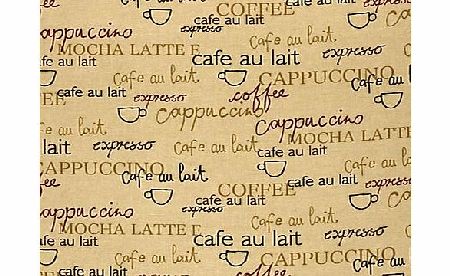 COFFEE
cafe au lait expresso
cappuccino cafe au lait
MOCHA LATTE E expresso
cafe au lait cafe au lait
CAPPUCCINO cafe au
cafe au lait expresso coffee
COFFEE cappuccino cafe au lait
cafe au lait cappuccino
expresso MOCHA LATTE E
lait cafe au lait
CAPPUCCINO cafe au lait
COFFEE cafe au lait expresso
cafe au lait
cappuccino expresso cafe au lait
MOCHA LATTE E cafe au lait expresso
cafe au lait CAPPUCCINO
cafe au lait coffee